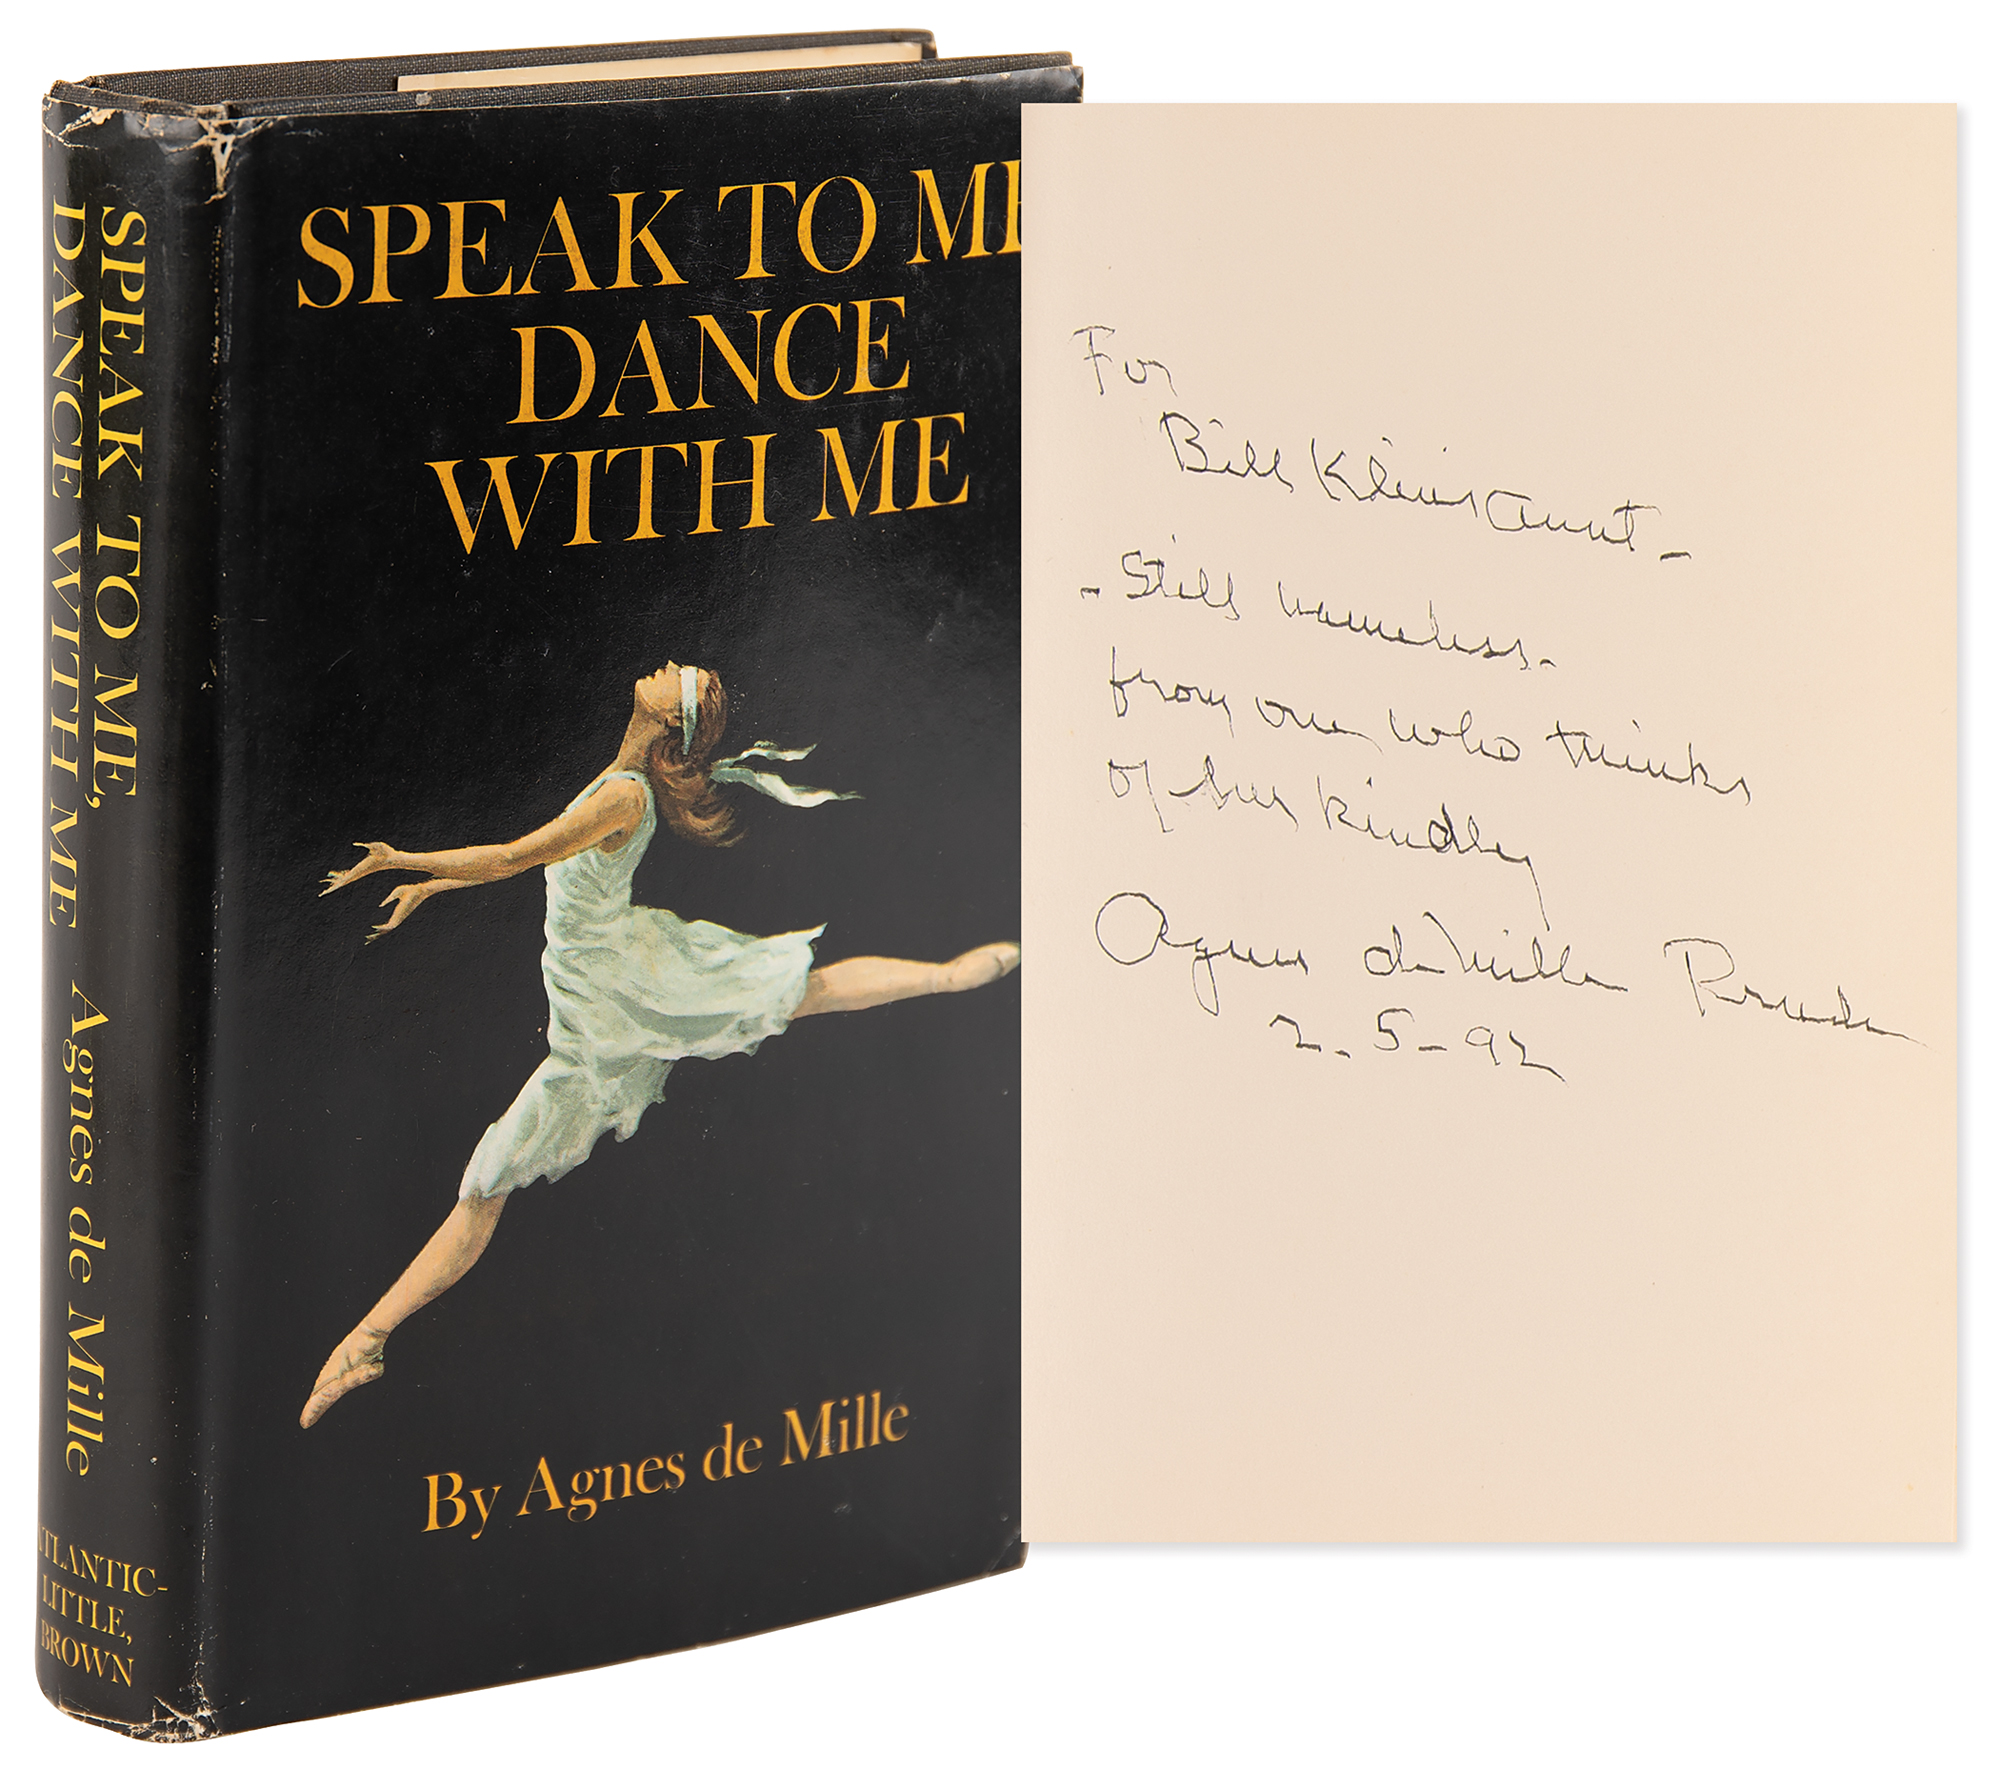 SPEAK TO ME,
DANCE WITH ME
Agnes de Mille
ATLANTIC-
LITTLE,
BROWN
SPEAK TO ME
DANCE
WITH ME
By Agnes de Mille
For
Bill Kleins aunt -
- Still nameless -
from one who thinks
of her kindly
Agnes de Mille Prude
2.5-92